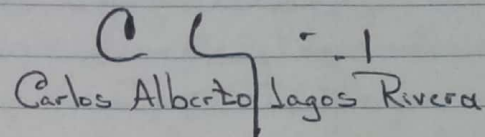 Carlos Alberto Lagos Rivera